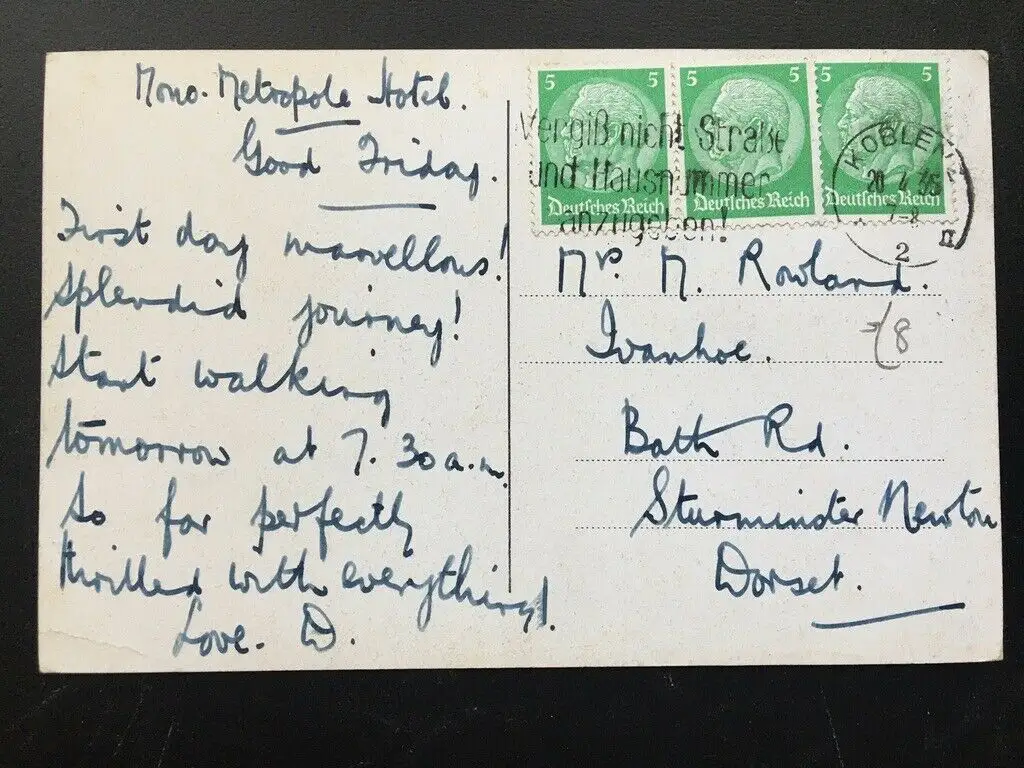 Mono-Metropole Hotel.
Good Friday.
First day marvellous!
Splendid journey!
Start walking
tomorrow at 7.30 a.m.
So far perfectly
thrilled with everything!
Love. D.
5 5
5 5
5 5
Deutsches Reich
Deutsches Reich
Deutsches Reich
Vergiß nicht Straße
und Hausnummer
anzugeben!
KOBLENZ
7-8
2
II
Mr. M. Rowland.
Ivanhoe.
Bath Rd.
Sturminster Newton
Dorset.